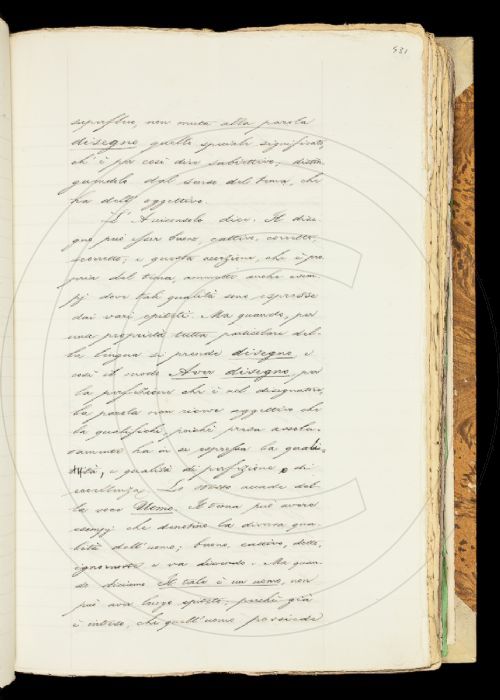 531
superfluo, non muta alla parola
disegno quello speciale significato,
ch'è per così dire subiettivo, distin
guendolo dal senso del tema, che
ha dell'oggettivo.
L'Avverselo dice. Il dise-
gno può esser buono, cattivo, corretto,
scorretto; e questa accezione, che è pro
pria del tema, ammette anche esem
pj dove tali qualità sono espresse
dai vari epiteti. Ma quando, per
una proprietà tutta particolare del-
la lingua si prende disegno, e
così il modo Aver disegno, per
la perfezione che è nel disegnatore,
la parola non riceve aggettivo che
la qualifichi, poichè presa assolu-
tamente ha in se espressa la quali-
tà, e qualità di perfezione e di
eccellenza. Lo stesso accade del-
la voce Uomo. Il tema può avere
esempj che denotino la diversa qua
lità dell'uomo; buono, cattivo, dotto,
ignorante e va dicendo. Ma quan-
do diciamo Il tale è un uomo, non
può aver luogo epiteto, perchè già
è inteso, che quell'uomo possiede